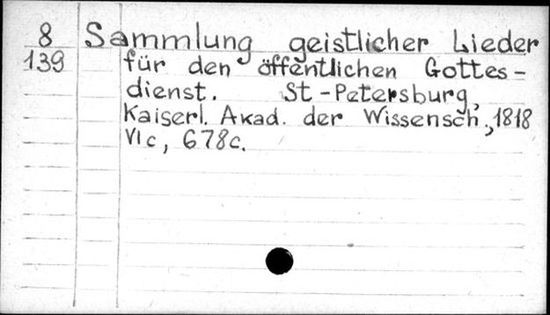 8 Sammlung geistlicher Lieder
139 für den öffentlichen Gottes-
dienst. St-Petersburg,
Kaiserl. Akad. der Wissensch., 1818
VIc, 678c.